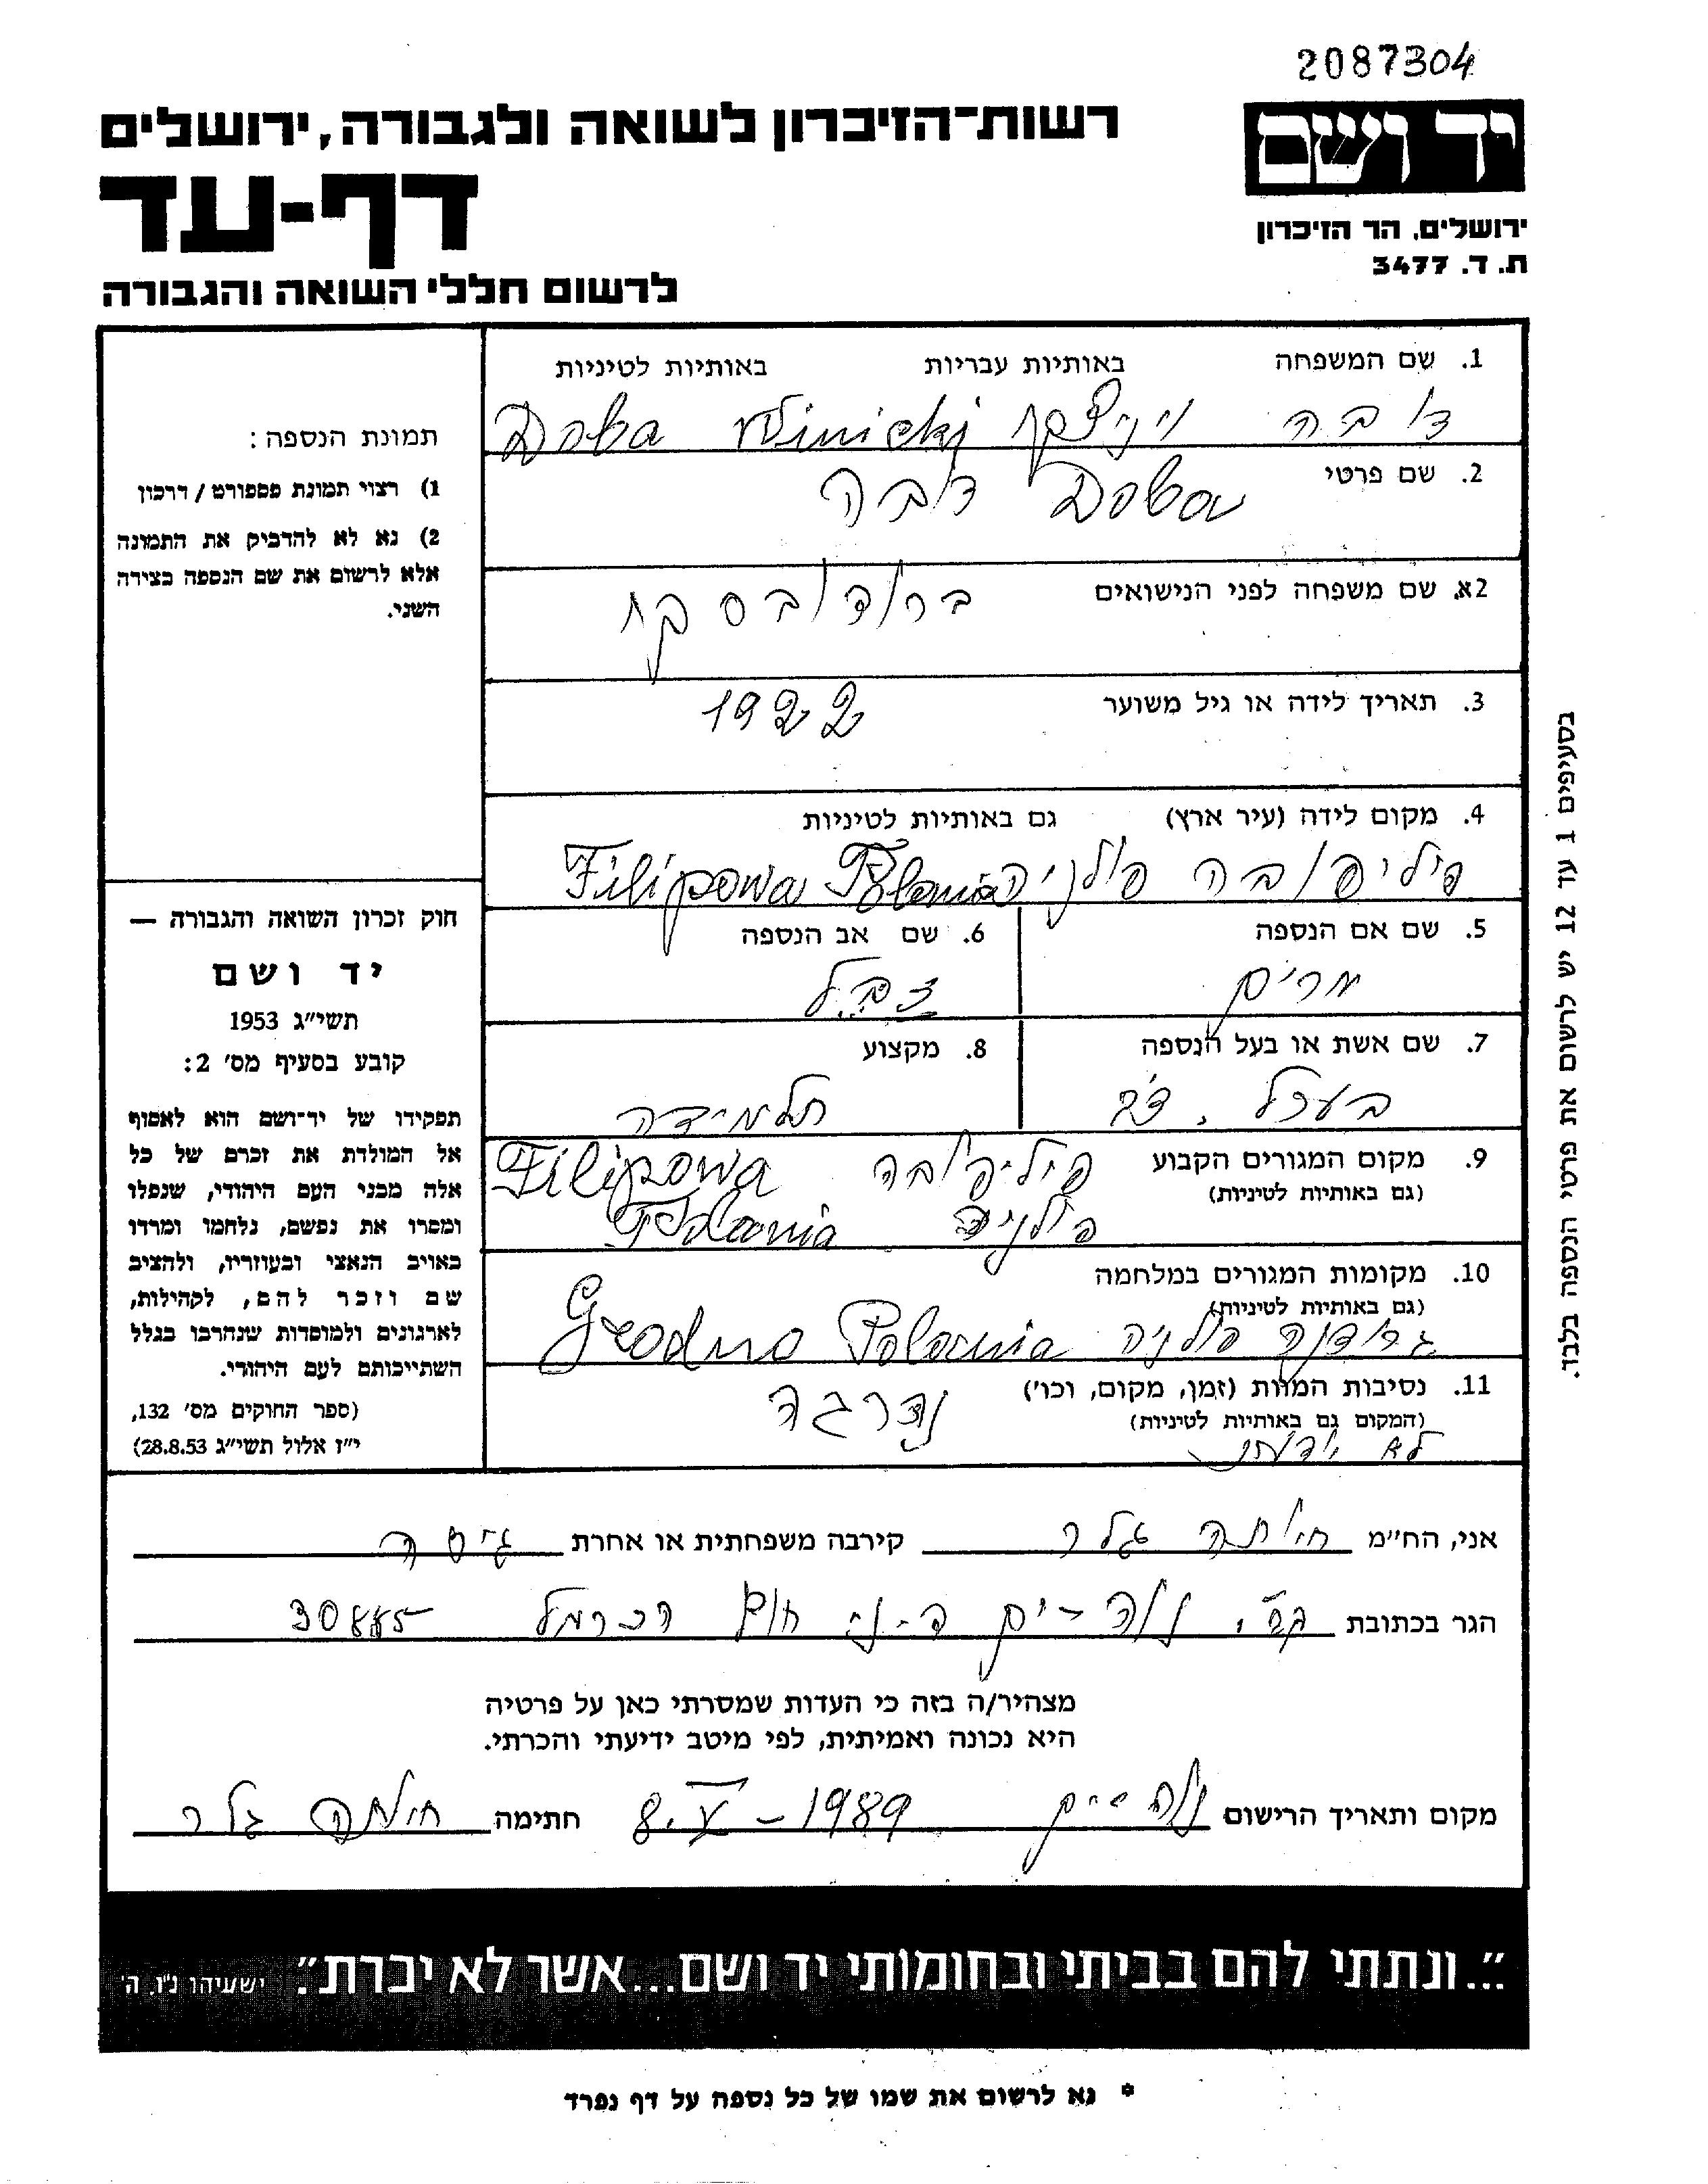 2087304
יד ושם
ירושלים, הר הזיכרון
ת. ד. 3477
רשות־הזיכרון לשואה ולגבורה, ירושלים
דף-עד
לרשום חללי השואה והגבורה
1. שם המשפחה באותיות עבריות באותיות לטיניות
דובה ויניצקי Doba Winicki
2. שם פרטי
Doba דובה
2א. שם משפחה לפני הנישואים
ברודובסקי
3. תאריך לידה או גיל משוער
1922
4. מקום לידה (עיר ארץ) גם באותיות לטיניות
פיליפובה פולניה Filipowa Polania
5. שם אם הנספה
מרים
6. שם אב הנספה
7. שם אשת או בעל הנספה
בערל
8. מקצוע
תלמידה
9. מקום המגורים הקבוע
(גם באותיות לטיניות)
פיליפובה Filipowa
פולניה Polania
10. מקומות המגורים במלחמה
(גם באותיות לטיניות)
גרודנה פולניה Grodno Polania
11. נסיבות המוות (זמן, מקום, וכו')
(המקום גם באותיות לטיניות)
נהרגה
לא ידוע
תמונת הנספה:
1) רצוי תמונת פספורט / דרכון
2) נא לא להדביק את התמונה
אלא לרשום את שם הנספה בצידה
השני.
חוק זכרון השואה והגבורה —
יד ושם
תשי"ג 1953
קובע בסעיף מס' 2:
תפקידו של יד־ושם הוא לאסוף
אל המולדת את זכרם של כל
אלה מבני העם היהודי, שנפלו
ומסרו את נפשם, נלחמו ומרדו
באויב הנאצי ובעוזריו, ולהציב
שם וזכר להם, לקהילות,
לארגונים ולמוסדות שנהרבו בגלל
השתייכותם לעם היהודי.
(ספר החוקים מס' 132,
י"ז אלול תשי"ג 28.8.53)
בסעיפים 1 עד 12 יש לרשום את פרטי הנספה בלבד.
אני, הח"מ גלר קירבה משפחתית או אחרת גיסה
הגר בכתובת קב. נוה-ים ד.נ. חוף הכרמל 30885
מצהיר/ה בזה כי העדות שמסרתי כאן על פרטיה
היא נכונה ואמיתית, לפי מיטב ידיעתי והכרתי.
מקום ותאריך הרישום נוה-ים 8.V-1989 חתימה גלר
"...ונתתי להם בביתי ובחומותי יד ושם...אשר לא יכרת". ישעיהו נ"ו, ה'
* נא לרשום את שמו של כל נספה על דף נפרד